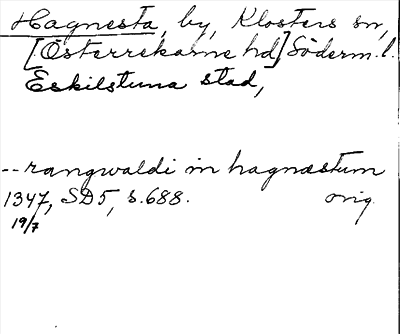 Hagnesta, by, Klosters sn,
[Österrekarne hd] Söderm. l.
Eskilstuna stad,
-- rangwaldi in hagnæstum
1347, SD5, s. 688. orig.
19/7